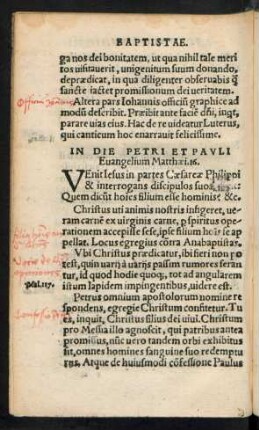 BAPTISTAE.
ga nos dei bonitatem, ut qua nihil tale meri
tos uisitauerit, unigenitum suum donando,
deprædicat, in qua diligenter obseruabis ꝗ̃
sancte iactet promissionum dei ueritatem.
Altera pars Iohannis officiū graphice ad
modū describit. Præibit ante faciē dñi, inqt,
parare uias eius. Hac de re uideatur Luterus,
qui canticum hoc enarrauit felicissime.
IN DIE PETRI ET PAVLI
Euangelium Matthæi.16.
VEnit Iesus in partes Cæsareæ Philippi
& interrogans discipulos suos
Quem dicūt hoīes filium esse hominis? &c.
Christus uti animis nostris infigeret, ue-
ram carnē ex uirginis carne, p spiritus ope-
rationem accepisse sese, ipse filium hoīs se ap
pellat. Locus egregius cōtra Anabaptistas.
Vbi Christus prædicatur, ibi fieri non po
test, quin uarij à uarijs passim rumores ferān
tur, id quod hodie quoq̄, tot ad angularem
istum lapidem impingentibus, uidere est.
Psal.117.
Petrus omnium apostolorum nomine re
spondens, egregie Christum confitetur. Tu
es, inquit, Christus filius dei uiui. Christum
pro Messia illo agnoscit, qui patribus antea
promissus, nūc uero tandem orbi exhibitus
sit, omnes homines sanguine suo redemptu
rus. Atque de huiusmodi cōfessione Paulus